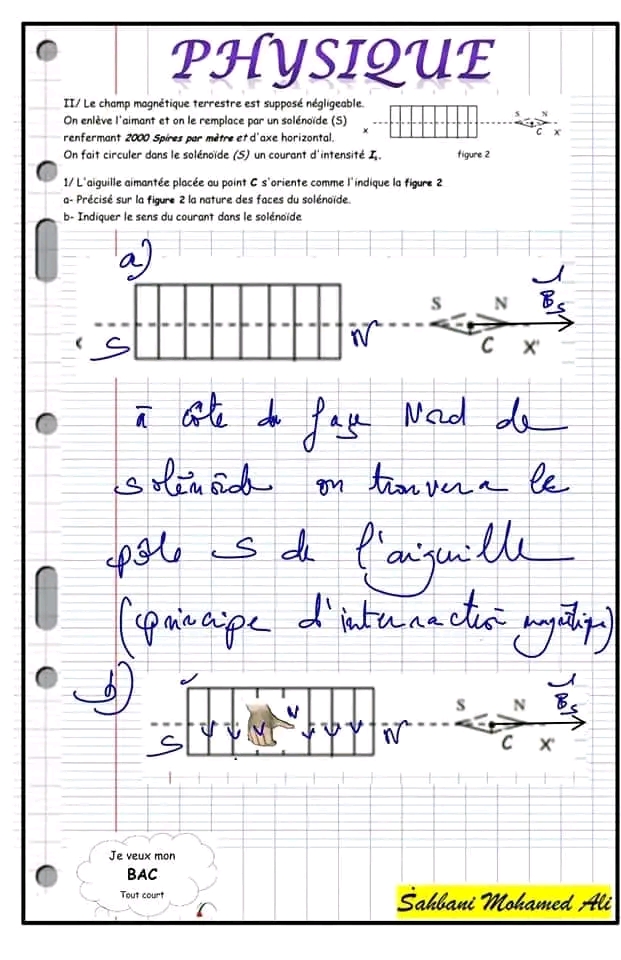 PHYSIQUE
II/ Le champ magnétique terrestre est supposé négligeable.
On enlève l'aimant et on le remplace par un solénoïde (S)
renfermant 2000 Spires par mètre et d'axe horizontal.
On fait circuler dans le solénoïde (S) un courant d'intensité I₁.
x
S N
C x'
figure 2
1/ L'aiguille aimantée placée au point C s'oriente comme l'indique la figure 2
a- Précisé sur la figure 2 la nature des faces du solénoïde.
b- Indiquer le sens du courant dans le solénoïde
a)
S N S N Bs
C X'
à côté du face Nord de
solénoïde on trouvera le
pôle S de l'aiguille
(principe d'interaction magnétique)
b)
S N S N Bs
C X'
Je veux mon
BAC
Tout court
Sahbani Mohamed Ali